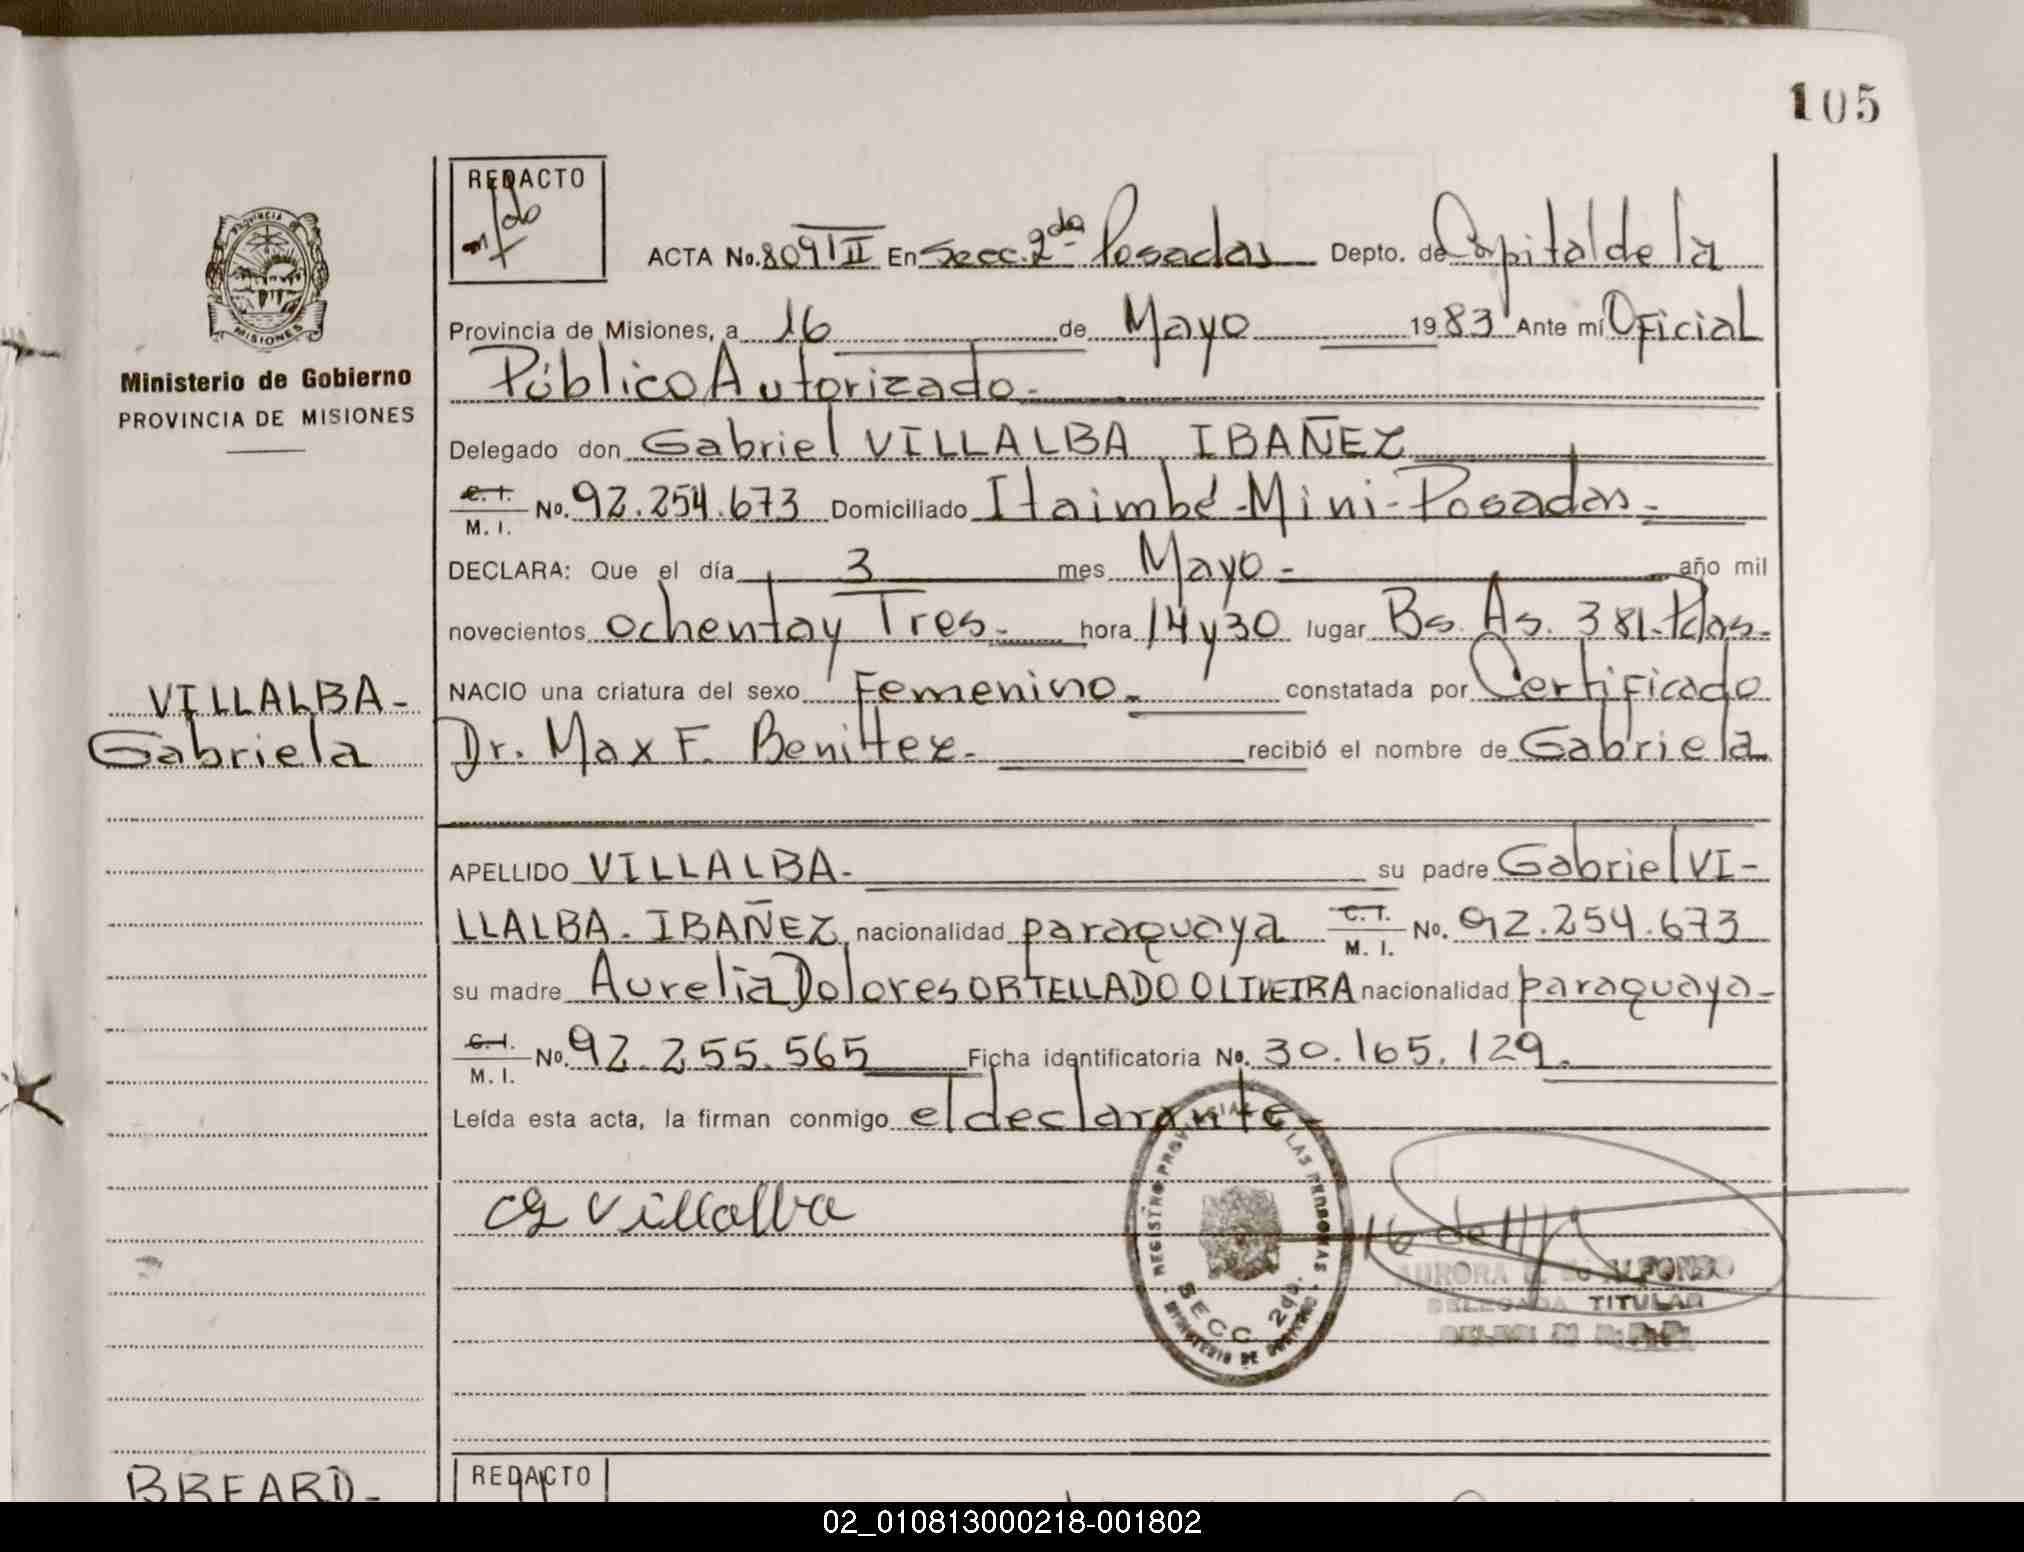 105
REDACTO
ACTA No. 809 TII En Secc. 2da Posadas Depto. de Capital de la
PROVINCIA
MISIONES
Provincia de Misiones, a 16 de Mayo 1983 Ante mí Oficial
Ministerio de Gobierno
PROVINCIA DE MISIONES
Público Autorizado.-
Delegado don Gabriel VILLALBA IBAÑEZ
C. I. M. I. No. 92.254.673 Domiciliado Itaimbé-Mini-Posadas-
DECLARA: Que el día 3 mes Mayo- año mil
novecientos ochenta y Tres- hora 14 y 30 lugar Bs. As. 381-Pdas-
VILLALBA-
Gabriela
NACIO una criatura del sexo Femenino- constatada por Certificado
Dr. Max F. Benittez- recibió el nombre de Gabriela
APELLIDO VILLALBA- su padre Gabriel VI-
LLALBA-IBAÑEZ nacionalidad paraquaya C. I. M. I. No. 92.254.673
su madre Aurelia Dolores ORTELLADO OLIVEIRA nacionalidad paraquaya-
C. I. M. I. No. 92.255.565 Ficha identificatoria No. 30.165.129.
Leída esta acta, la firman conmigo el declarante-
Villalba
REGISTRO PROVINCIAL LAS PERSONAS
SECC 2da.
MINISTERIO DE GOBIERNO
16 de
AURORA ALFONSO
DELEGADA TITULAR
BREARD-
REDACTO
02_010813000218-001802